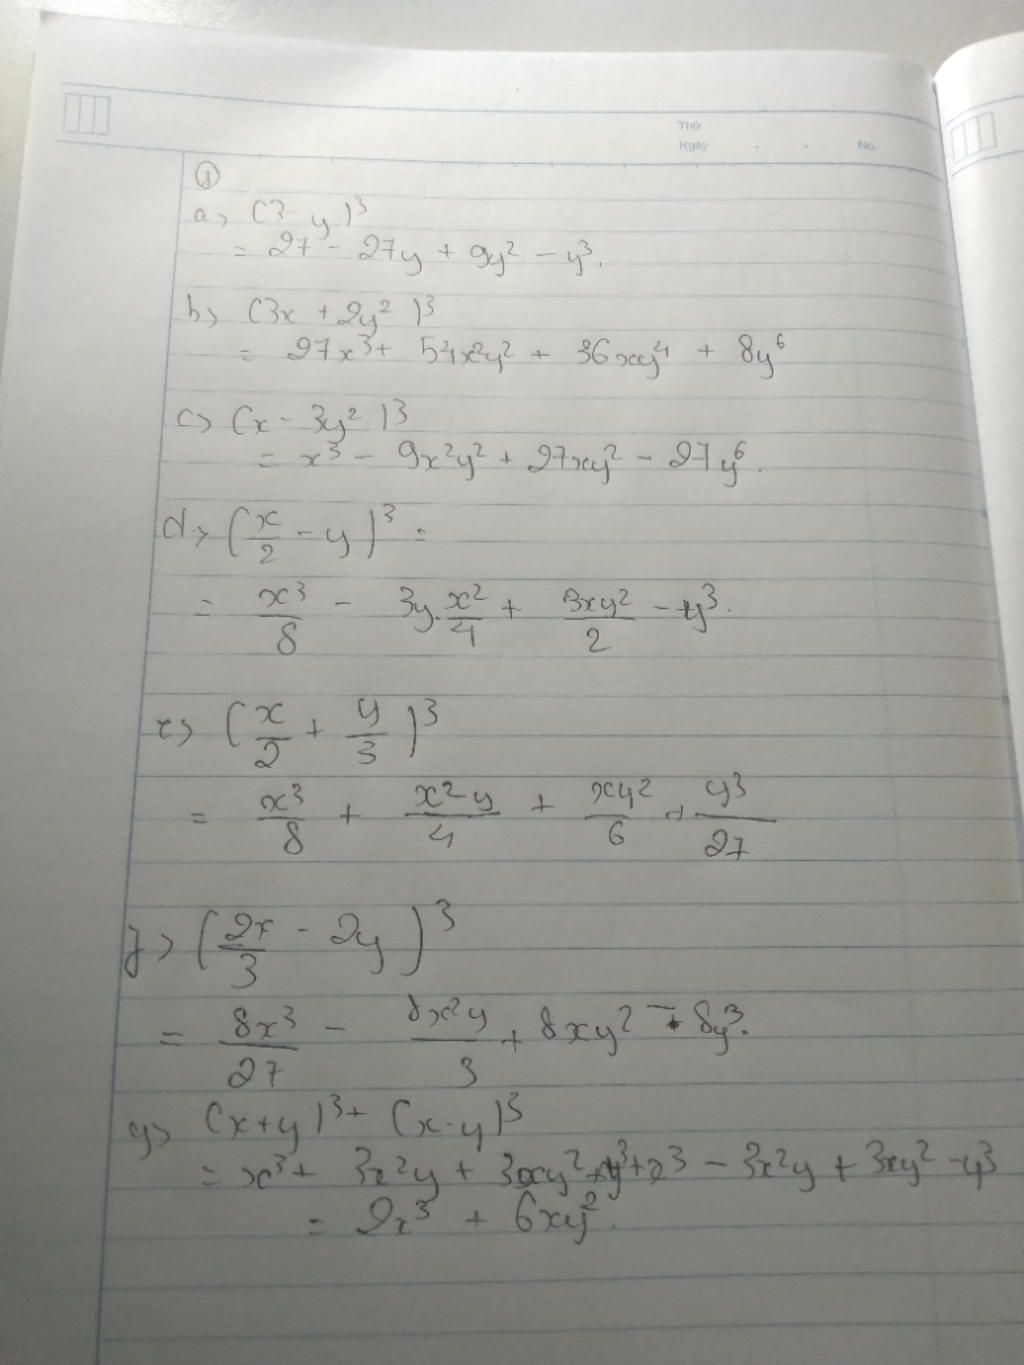 Thứ
Ngày . . No.
①
a, (3 - y)³
= 27 - 27y + 9y² - y³.
b, (3x + 2y²)³
= 27x³ + 54x²y² + 36xy⁴ + 8y⁶
c, (x - 3y²)³
= x³ - 9x²y² + 27xy² - 27y⁶.
d, (x/2 - y)³ =
= x³/8 - 3y.x²/4 + 3xy²/2 - y³.
e, (x/2 + y/3)³
= x³/8 + x²y/4 + xy²/6 + y³/27
f, (2x/3 - 2y)³
= 8x³/27 - 8x²y/3 + 8xy² - 8y³.
g, (x+y)³ + (x-y)³
= x³ + 3x²y + 3xy² + y³ + x³ - 3x²y + 3xy² - y³
= 2x³ + 6xy².